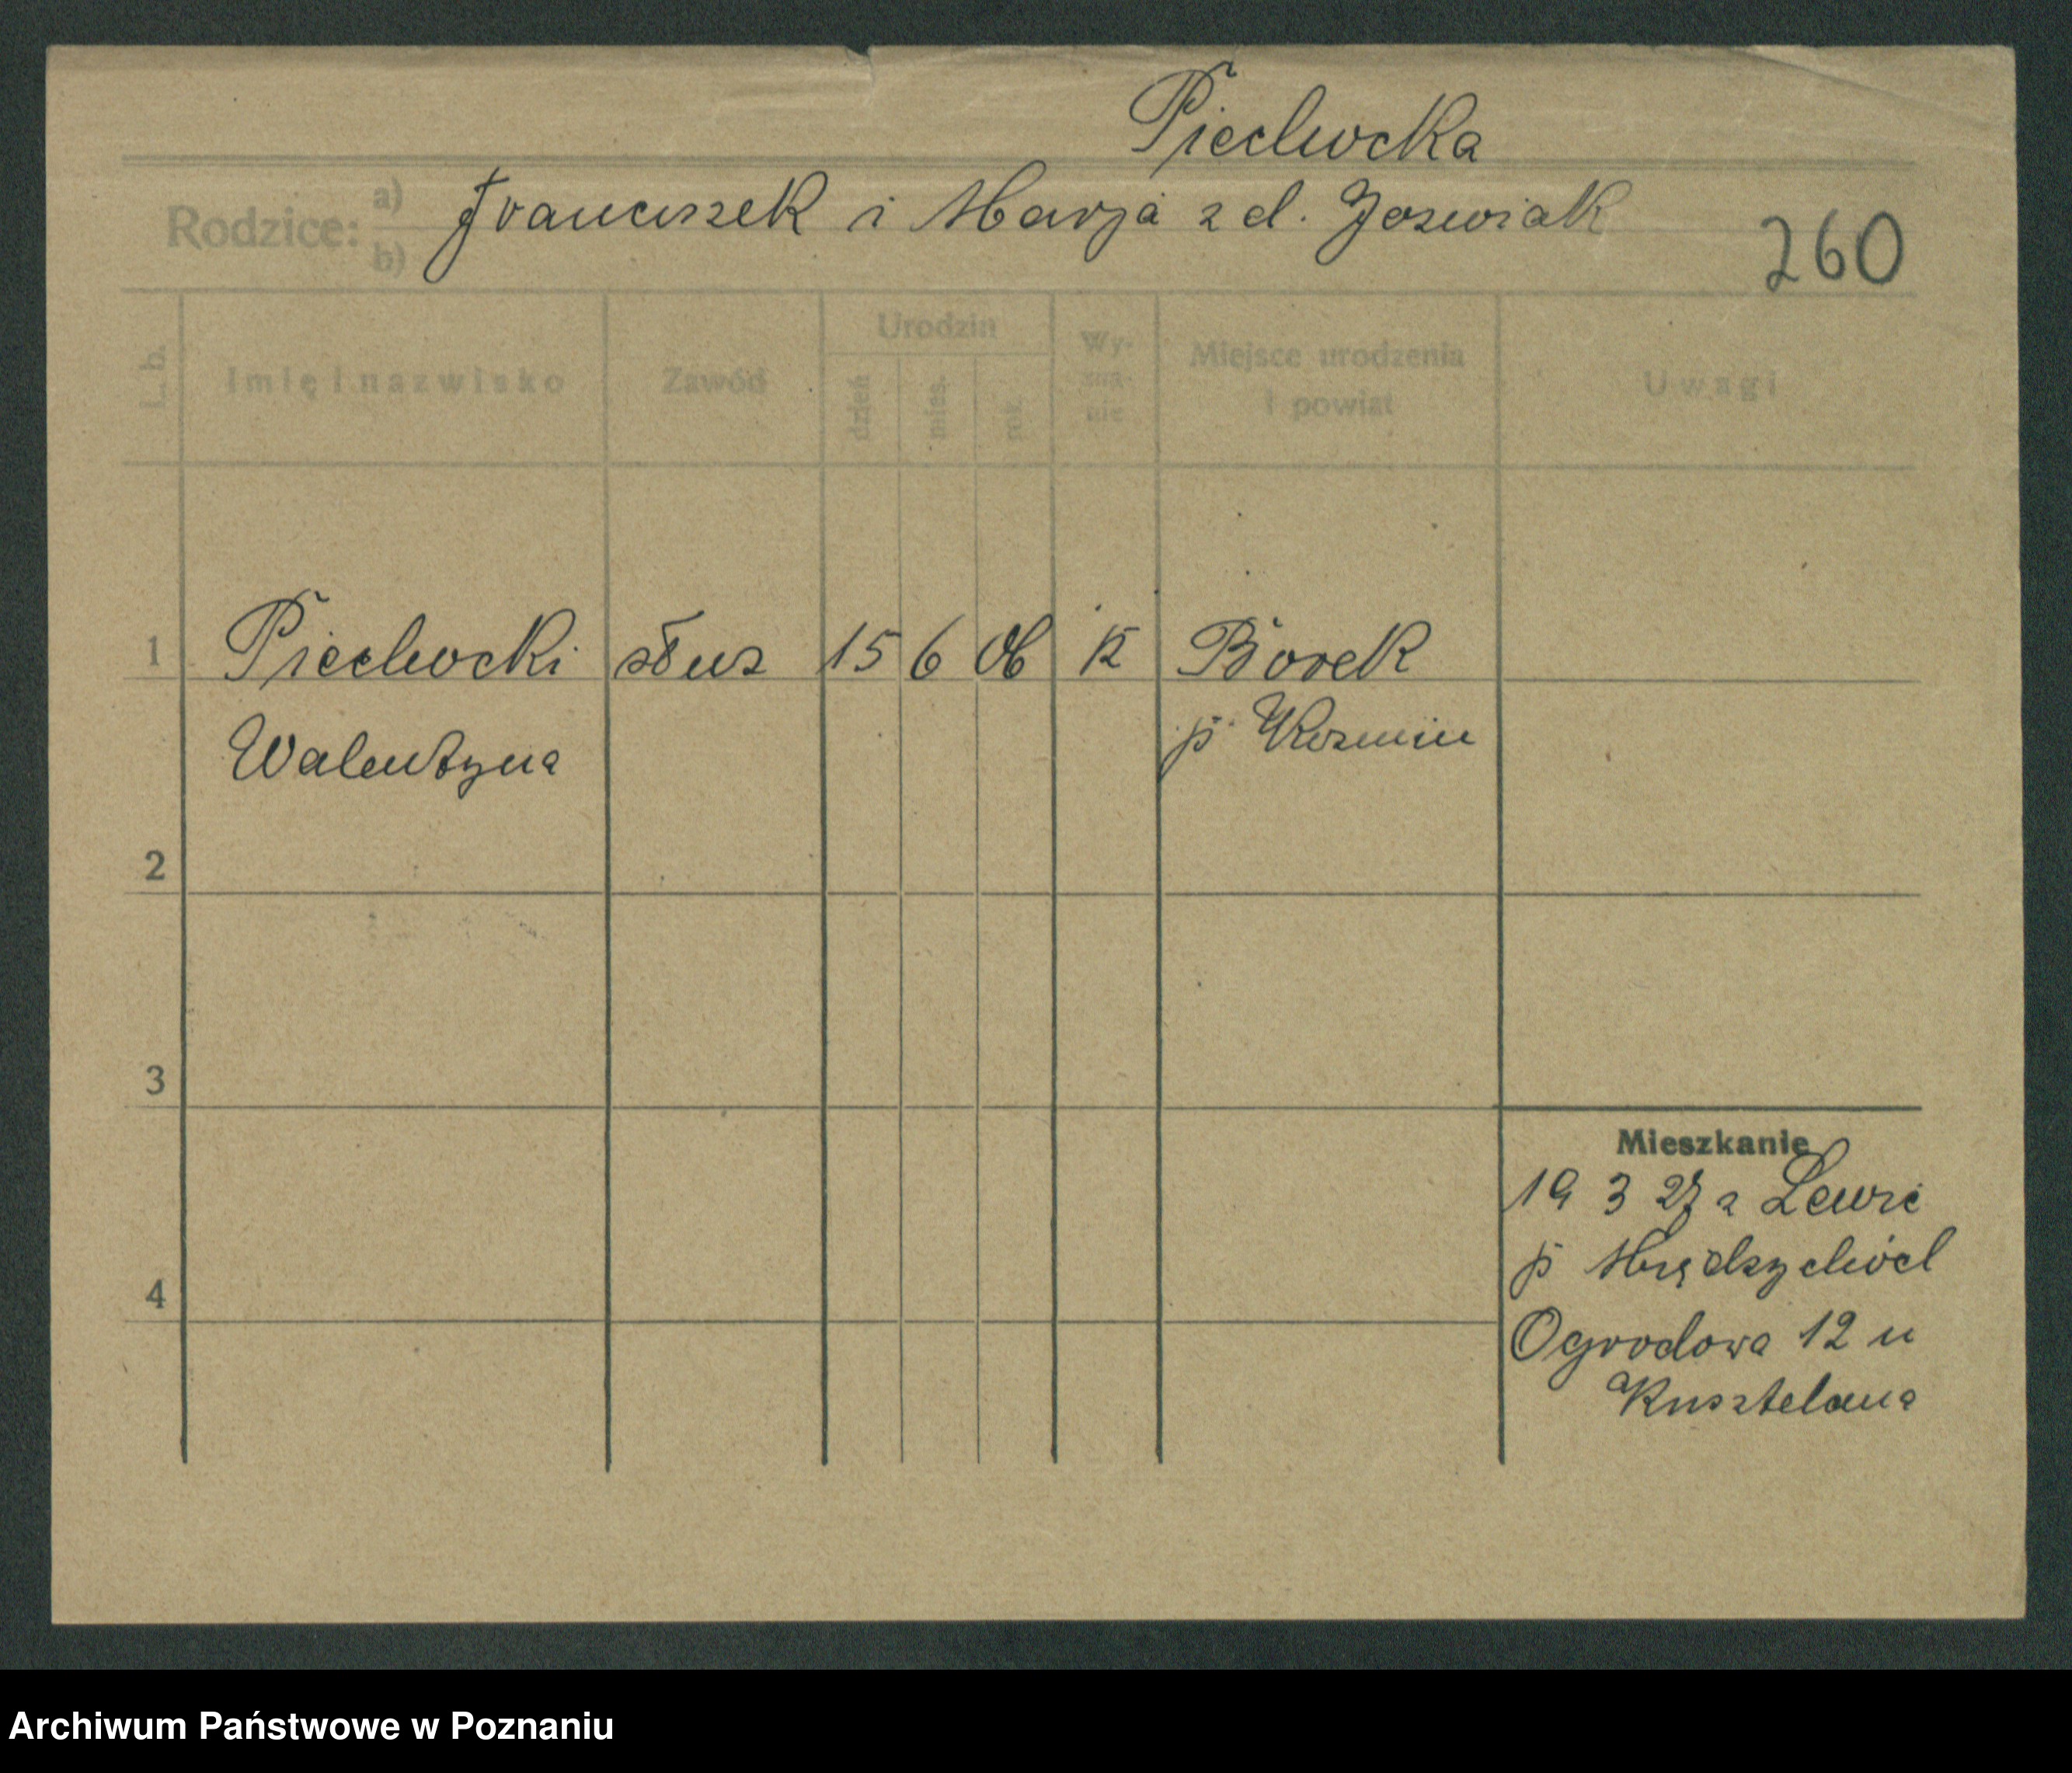 Piechocka
Rodzice: a) b) Franciszek i Marja z d. Jozwiak
260
L. b. Imię i nazwisko Zawód Urodzin dzień mies. rok Wy-zna-nie Miejsce urodzenia i powiat Uwagi
1 Piechocki słuz 15 6 06 K Borek
Walentyna p Kozmin
2
3
Mieszkanie
19 3 27 z Lewic
p Międzychód
4
Ogrodowa 12 u
Kusztelana
Archiwum Państwowe w Poznaniu